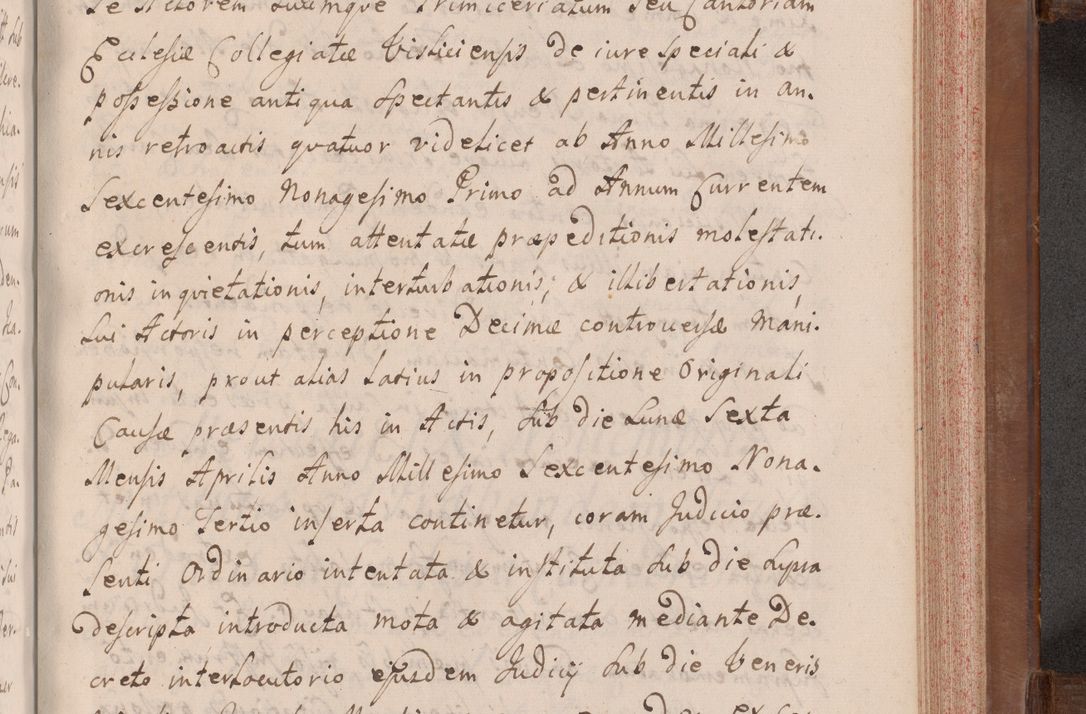 se Actorem suumque Primiceriatum seu Cantoriam
Ecclesiæ Collegiatæ Visliciensis de iure speciali &
possessione antiqua spectantis & pertinentis in an-
nis retroactis quatuor videlicet ab Anno Millesimo
Sexcentesimo Nonagesimo Primo ad Annum Currentem
excrescentis, tum attentatæ præpeditionis molestati-
onis inquietationis, interturbationis; & illibertationis,
sui Actoris in perceptione Decimæ controversæ Mani-
pularis, prout alias latius in propositione Originali
Causæ præsentis his in Actis, sub die Lunæ Sexta
Mensis Aprilis Anno Millesimo Sexcentesimo Nona-
gesimo Tertio inserta continetur, coram Judicio præ-
senti Ordinario intentata & instituta sub die supra
descripta introducta mota & agitata mediante De-
creto interlocutorio ejusdem Judicij sub die Veneris